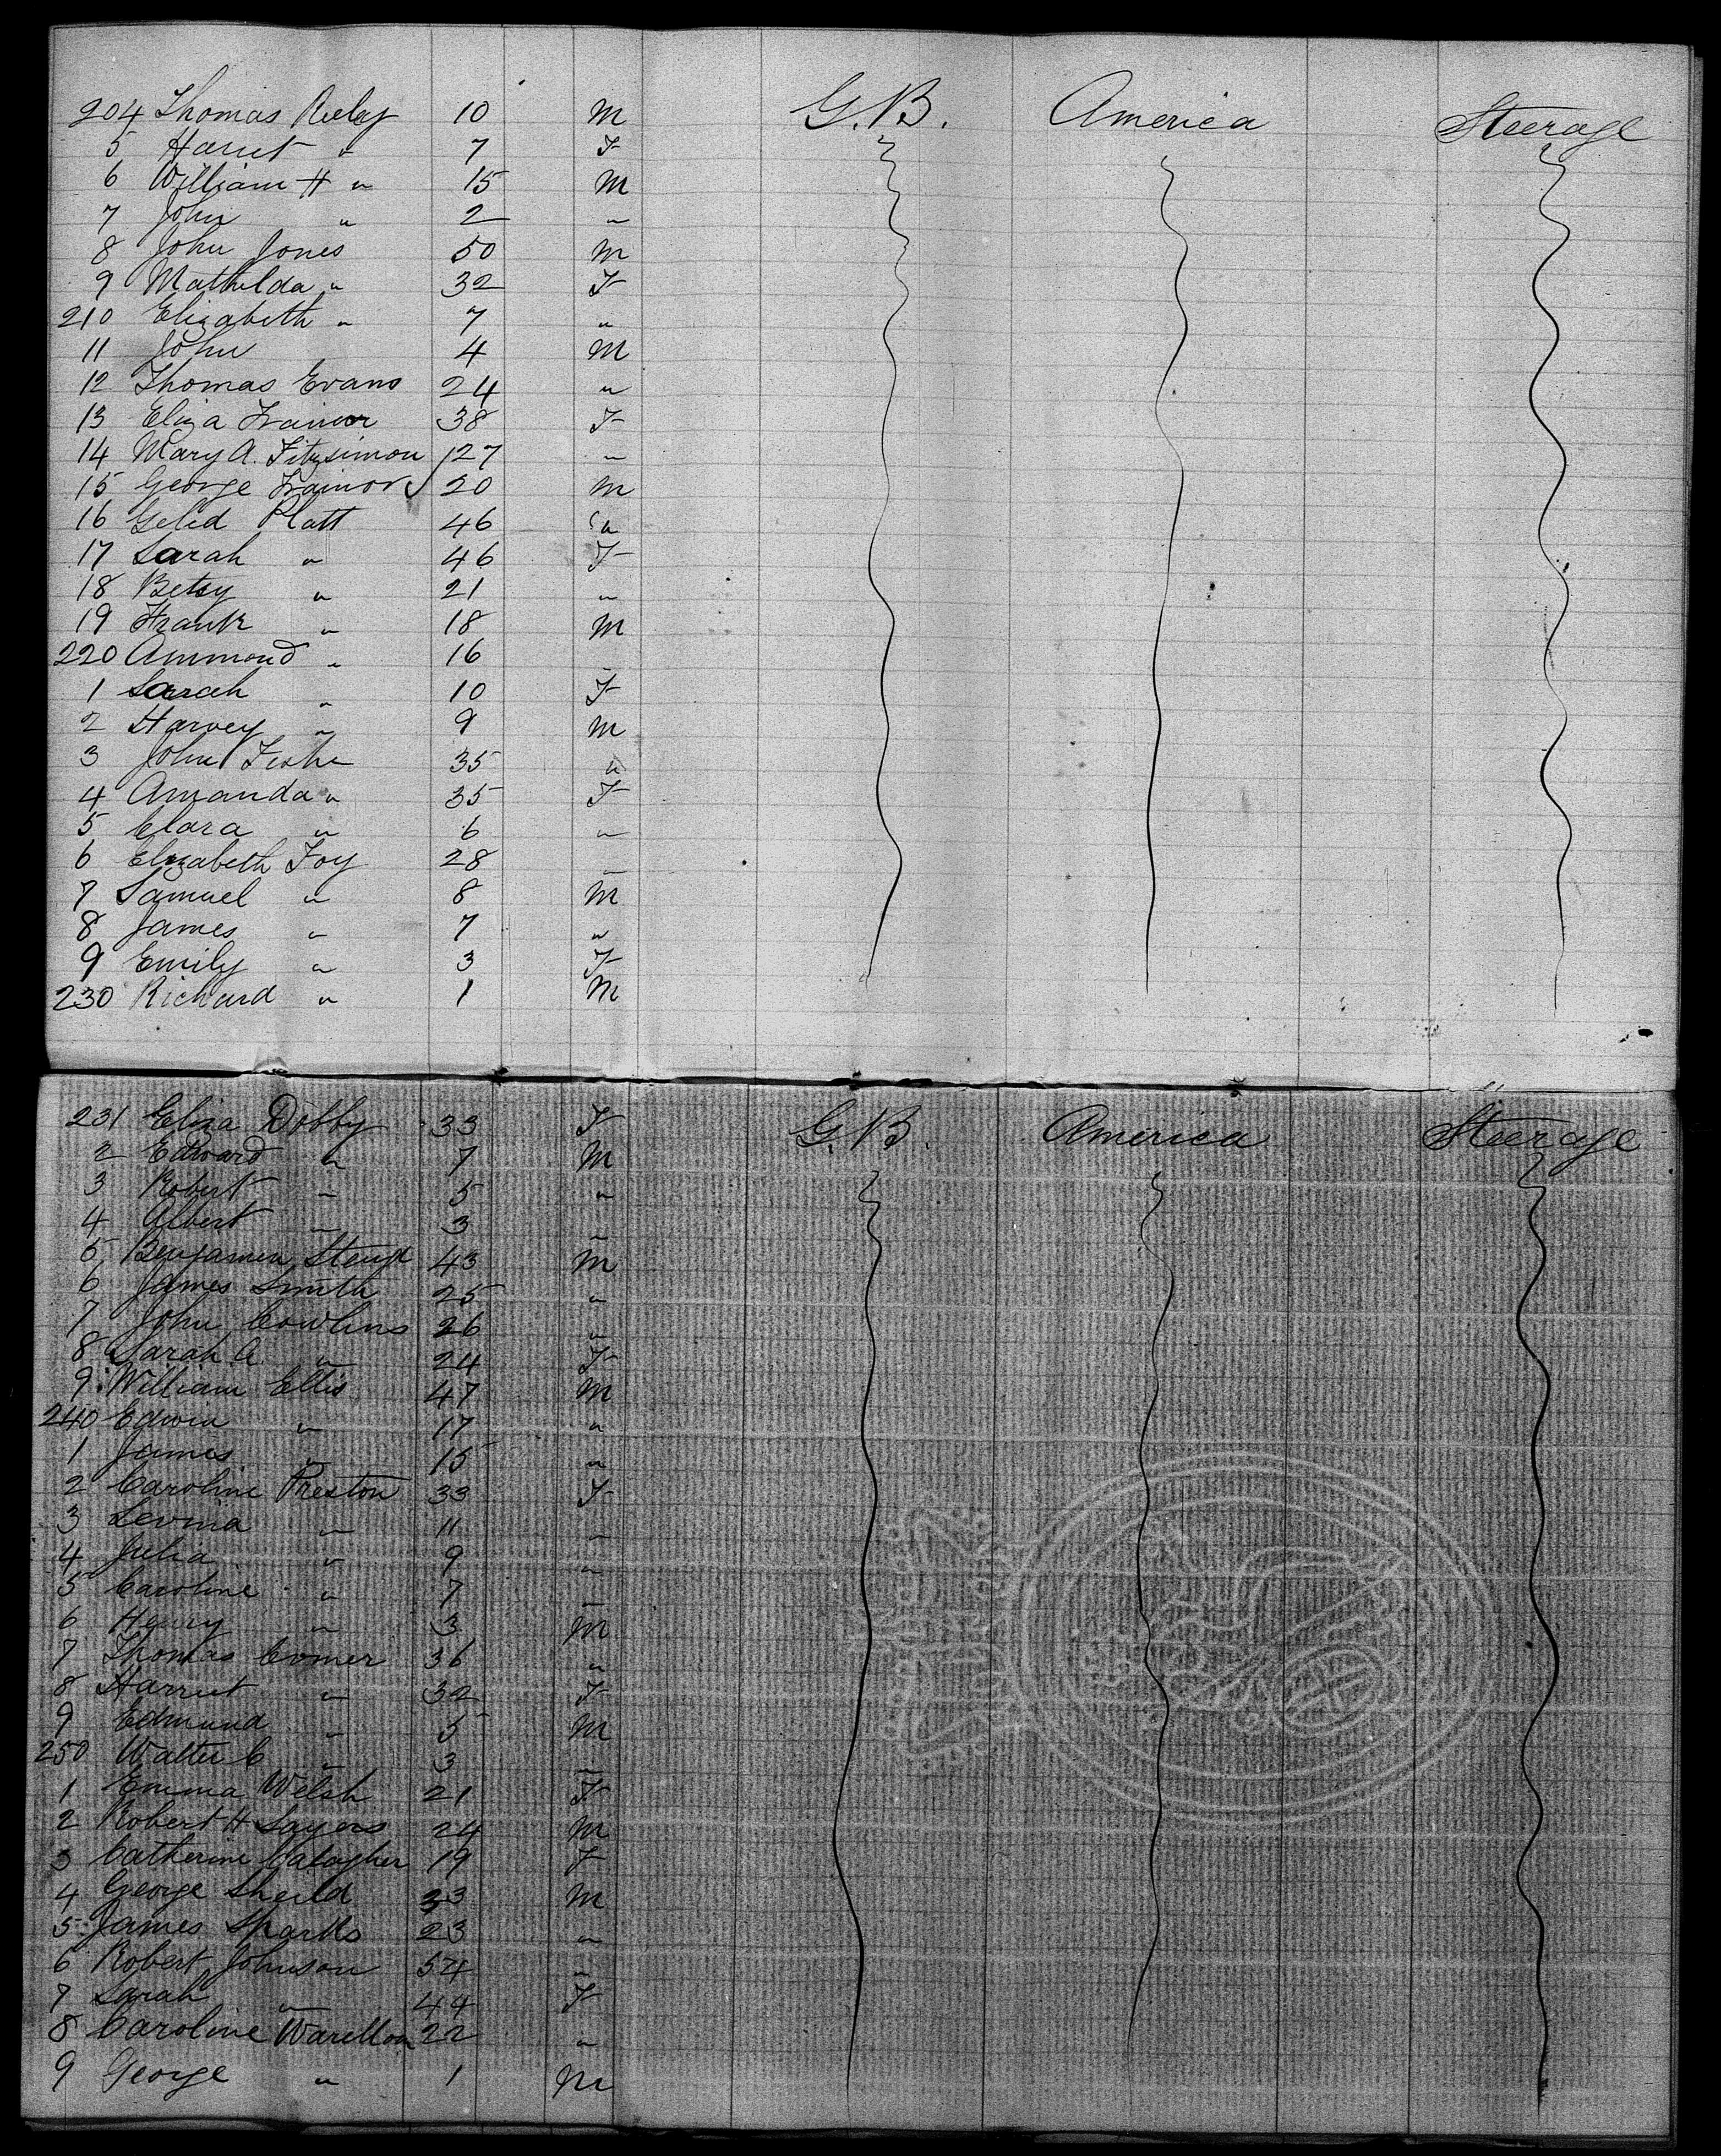 204 Thomas Reeley 10 M G.B. America Steerage
5 Harriet " 7 F
6 William H " 15 M
7 John " 2 "
8 John Jones 50 M
9 Mathilda " 32 F
210 Elizabeth " 7 "
11 John 4 M
12 Thomas Evans 24 "
13 Eliza Trainor 38 F
14 Mary A. Fitzsimon 27 "
15 George Trainor 20 M
16 Platt 46 "
17 Sarah " 46 F
18 Betsy " 21 "
19 Frank " 18 M
220 Ammond " 16 "
1 Sarah " 10 F
2 Harvey " 9 M
3 John 35 "
4 Amanda " 35 F
5 Clara " 6 "
6 Elizabeth Foy 28 "
7 Samuel " 8 M
8 James " 7 "
9 Emily " 3 F
230 Richard " 1 M
231 Eliza Dobby 33 F G.B. America Steerage
2 Edward " 7 M
3 Robert " 5 "
4 Albert " 3 "
5 Benjamen 43 M
6 James Smith 25 "
7 John Cowlins 26 "
8 Sarah A. " 24 F
9 William Ellis 47 M
240 Edwin " 17 "
1 James " 15 "
2 Caroline Preston 33 F
3 Levina " 11 "
4 Julia " 9 "
5 Caroline " 7 "
6 Henry " 3 M
7 Thomas Comer 36 "
8 Harriet " 32 F
9 Edmund " 5 M
250 Walter C " 3 "
1 Emma Welsh 21 F
2 Robert H Sayers 24 M
3 Catherine Galagher 19 F
4 George Sheild 23 M
5 James Sparks 23 "
6 Robert Johnson 54 "
7 Sarah " 44 F
8 Caroline 22 "
9 George " 1 M